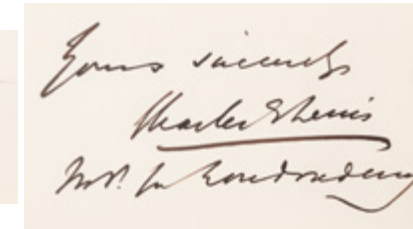 Yours sincerely
Charles E Lewis
M.P. for Londonderry